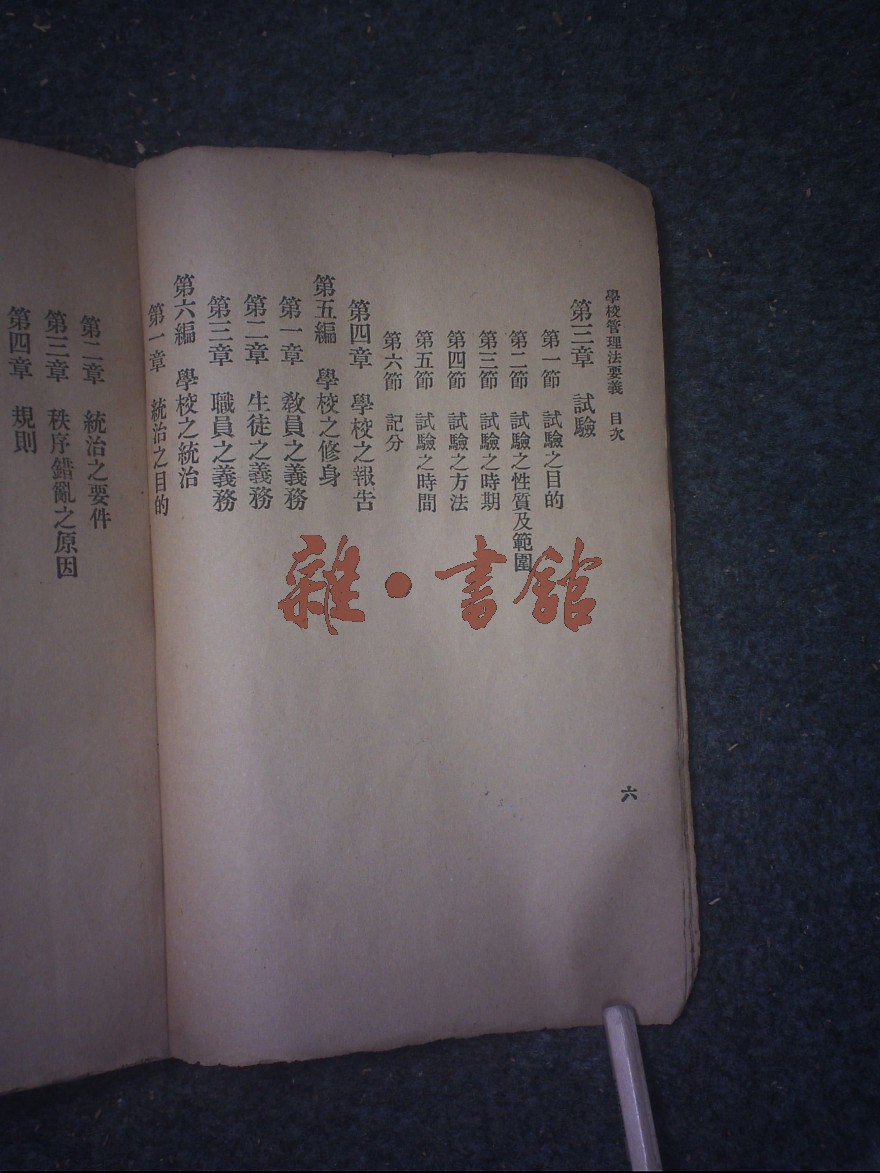 學校管理法要義 目次
第三章 試驗
第一節 試驗之目的
第二節 試驗之性質及範圍
第三節 試驗之時期
第四節 試驗之方法
第五節 試驗之時間
第六節 記分
第四章 學校之報告
第五編 學校之修身
第一章 敎員之義務
第二章 生徒之義務
第三章 職員之義務
第六編 學校之統治
第一章 統治之目的
六
第二章 統治之要件
第三章 秩序錯亂之原因
第四章 規則
雜·書館